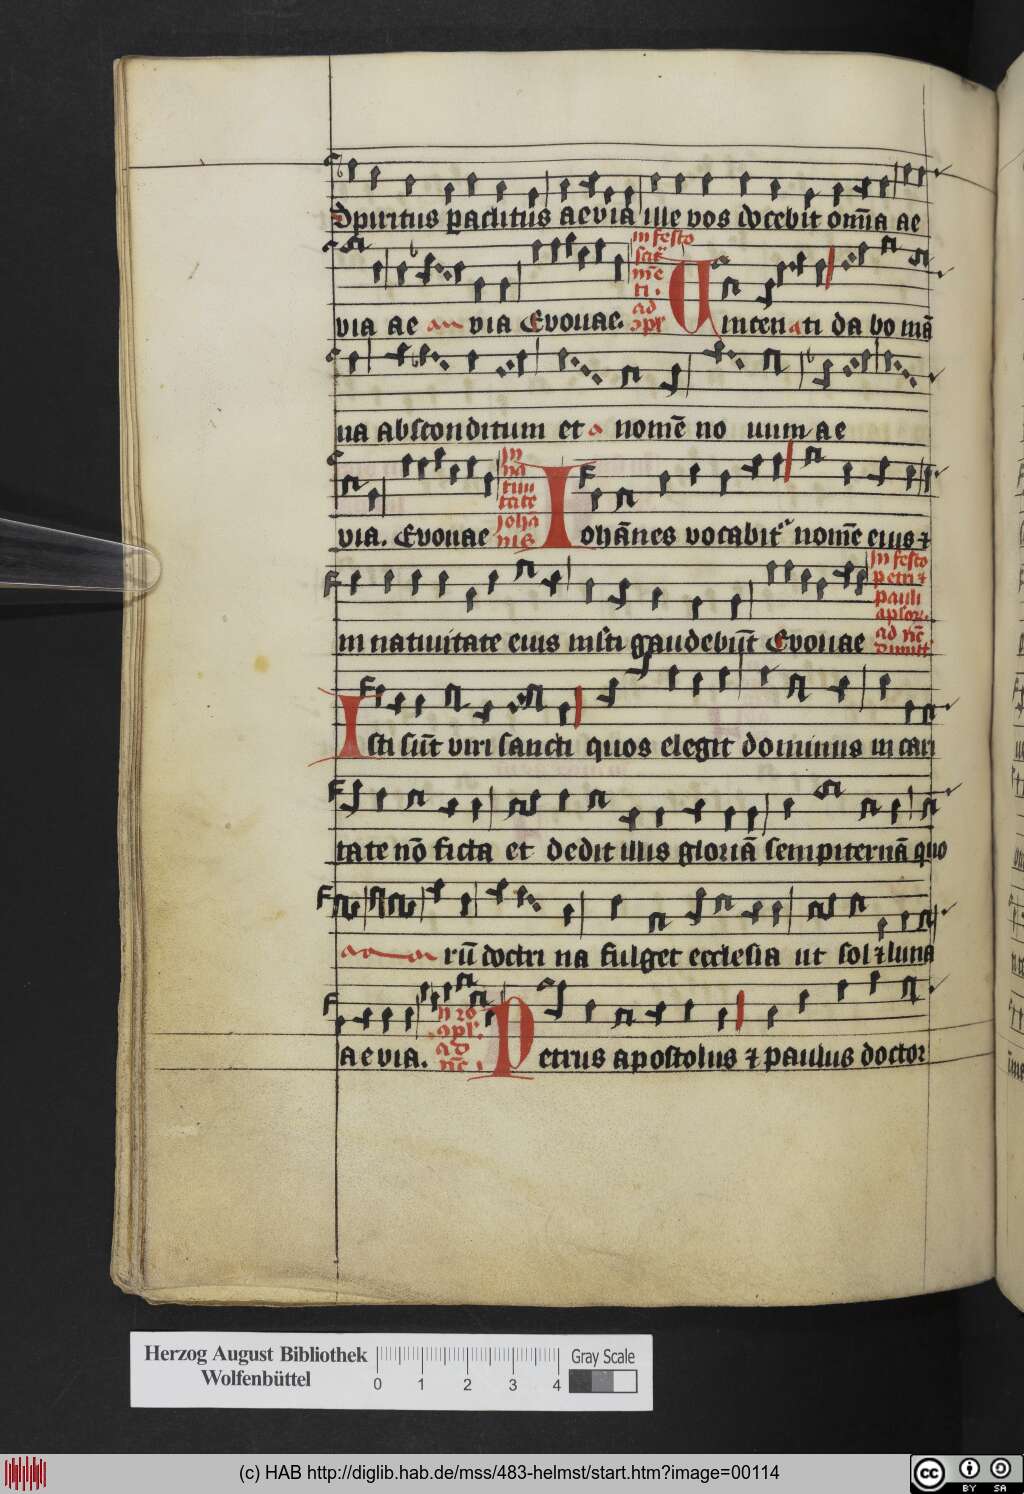 Spiritus paclitus aevia ille vos docebit om̄a ae
in festo
sact̄
mē
ti.
ad
ꝯpl̄
via ae via Evouae.
Vincen ti da bo mā
na absconditum et nomē no uum ae
via. Evouae
In
na
tiui
tate
Joha
nis
Iohānes vocabit nomē eius ⁊
in natiuitate eius m̄lti gaudebūt Evouae
In festo
petri ⁊
pauli
aplor.
ad nc̄
dimitt
Isti sūt viri sancti quos elegit dominus in cari
tate nō ficta et dedit illis gloriā sempiternā quo
rū doctri na fulget ecclesia ut sol ⁊ luna
aevia.
ad
Petrus apostolus ⁊ paulus doctor
Herzog August Bibliothek
Wolfenbüttel
0 1 2 3 4
Gray Scale
(c) HAB http://diglib.hab.de/mss/483-helmst/start.htm?image=00114
cc BY SA